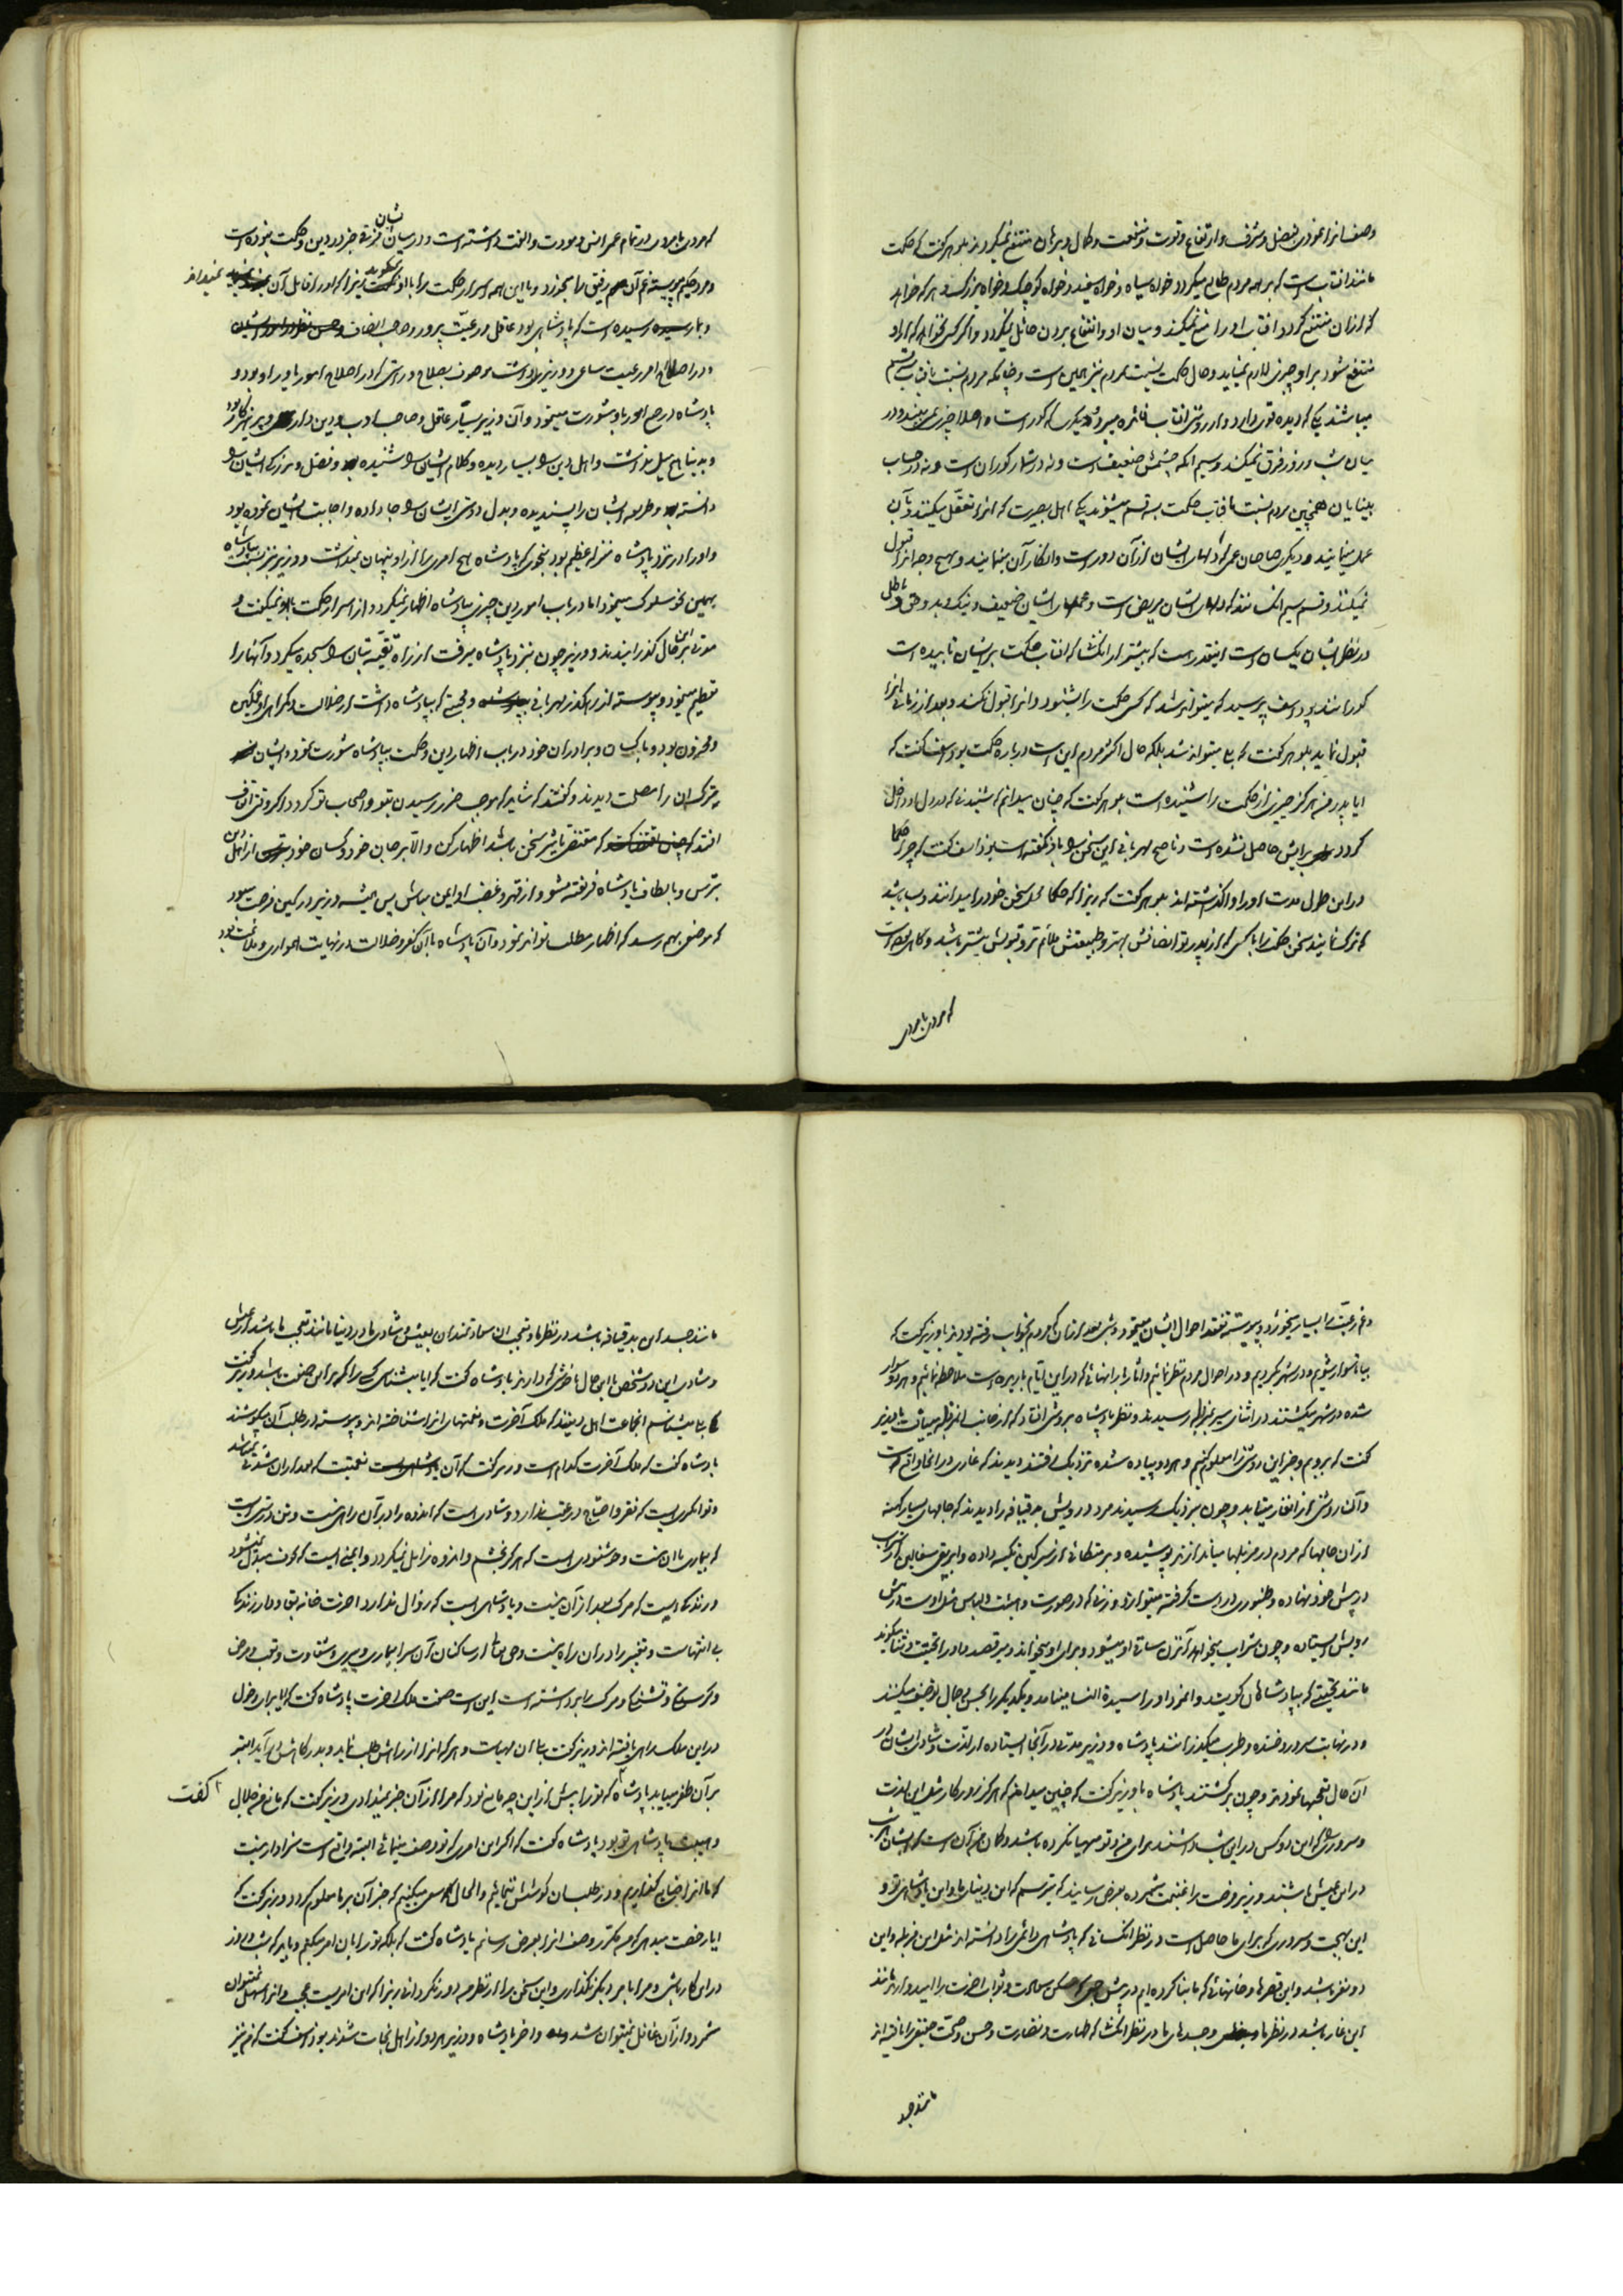 وصف انرا نمودی بفضل و شرف و ارتفاع و قوت و منفعت و کمال و برهان منتفع نمیگردند بلوهر گفت که حکمت
مانند افتاب است که بر همه مردم طالع میگردد خواه سیاه و خواه سفید و خواه کوچک و خواه بزرگ و هر که خواهد
که از ان منتفع گردد افتاب او را منع نمیکند و میان او و انتفاع بردن حائل نمیگردد و اگر کسی نخواهد که از او
منتفع شود بر او چیزی لازم نمیاید و حال حکمت نسبت بمردم نیز چنین است و چنانکه مردم نسبت بافتاب سه قسم
میباشند یکی که دیده قوی دارد و از روشنی افتاب فائده میبرد و دیگری که کور است و اصلا چیزی نمی بیند و در
میان شب و روز فرق نمیکند و سیم انکه چشمش ضعیف است و نه در شمار کوران است و نه در حساب
بینایان همچنین مردم نسبت بافتاب حکمت بسه قسم میشوند یکی اهل بصیرت که انرا تعقل میکنند و بآن
عمل مینمایند و دیگری صاحبان عمی که دلهای ایشان از آن دور است و انکار آن مینمایند و بهیچ وجه انرا قبول
نمیکنند و قسم سیم انکسانند که دلهای ایشان مریض است و عملهای ایشان ضعیف و نیک و بد و حق و باطل
در نظر ایشان یکسان است اینقدر هست که بیشتر از انکسان که افتاب حکمت بر ایشان تابیده است
کورانند یوذاسف پرسید که میتواند شد که کسی حکمت را بشنود و انرا قبول نکند و بعد از زمانی انرا
قبول نماید بلوهر گفت که بلی میتواند شد بلکه حال اکثر مردم این است درباره حکمت یوذاسف گفت که
ایا پدر من هرگز چیزی از حکمت را شنیده است بلوهر گفت که چنان میدانم که شنیدنی که در دل او داخل
گردد برایش حاصل نشده است و ناصح مهربانی این سخن را باو نگفته است یوذاسف گفت که چرا حکما
در این طول مدت او را واگذاشته اند بلوهر گفت که زیرا که حکما محل سخن خود را میدانند و بسا باشد
که ترک نمایند سخن حکمت را با کسی که از پدر تو انصافش بهتر و طبیعتش ملایم تر و قبولش بیشتر باشد و گاه هست
که مردی با مردی
که مردی با مردی در تمام عمر انس و مودت و الفت داشته است و در میان ایشان فرقی جز در دین و حکمت نبوده است
و مرد حکیم پیوسته غم آن رفیق را میخورد و با این همه اسرار حکمت را باو نمیگوید زیرا که او را قابل آن نمیداند
و بما رسیده است که پادشاهی بود عاقل و رعیت پرور و صاحب انصاف
و در اصلاح امر رعیت ساعی و وزیری داشت موصوف بصلاح و راستی که در اصلاح امور یاور او بود و
پادشاه در جمیع امور باو مشورت مینمود و آن وزیر بسیار عاقل و صاحب ادب و دین دار و پرهیزکار بود
و بدنیا هیچ میل نداشت و اهل دین را بسیار دیده و کلام ایشان را شنیده و فضل و بزرگی ایشان را
دانسته و طریقه ایشان را پسندیده و بدل دوستی ایشان را جا داده و اجابت ایشان نموده بود
و او را در نزد پادشاه منزلت عظیم بود بنحوی که پادشاه هیچ امری را از او پنهان نمیداشت و وزیر نیز نسبت بپادشاه
بهمین نحو سلوک مینمود اما در باب امور دین چیزی بپادشاه اظهار نمیکرد و از اسرار حکمت باو نمیگفت و
مدتی بر این حال گذرانیدند و وزیر چون بنزد پادشاه میرفت از راه تقیه بتان را سجده میکرد و آنها را
تعظیم مینمود و پیوسته از راه کذر مهربانی و محبتی که بپادشاه داشت از ضلالت و گمراهی او غمگین
و محزون بود و با کسان و برادران خود در باب اظهار دین و حکمت بپادشاه مشورت نمود و ایشان
ترک ان را مصلحت دیدند و گفتند که شاید که موجب ضرر رسیدن بتو و اصحاب تو گردد اگر وقتی اتفاق
افتد که مقتضی باشد سخن باشد اظهار کن و الا بر جان خود و کسان خود از اهل دین
بترس و بالطاف پادشاه فریفته مشو و از قهر و غضب او ایمن مباش پس همیشه وزیر در کمین فرصت میبود
که موضعی بهم رسد که اظهار مطلب تواند نمود و آن پادشاه با آن کفر و ضلالت در نهایت همواری و ملایمت بود
و غم رعیت را بسیار میخورد و پیوسته تفقد احوال ایشان مینمود و شبی بعد از زمان که مردم بخواب رفته بودند با وزیر گفت که
بیا تا سوار شویم و در شهر بگردیم و در احوال مردم نظر نمائیم و اثار بارانهائی که در این ایام باریده است ملاحظه نمائیم و هر دو سوار
شده در شهر میگشتند در اثنای سیر بمزبله رسیدند و نظر پادشاه بروشنی افتاد که از جانب ان مزبله میتافت با وزیر
گفت که برویم و خبر این روشنی را معلوم کنیم و هر دو پیاده شده نزدیک رفتند دیدند که غاری در انجا واقع است
و آن روشنی از انغار میتابد و چون نزدیک رسیدند مرد درویش بدقیافه را دیدند که جامهای بسیار کهنه
از ان جامها که مردم در مزبلها میاندازند پوشیده و بر متکائی از سرگین تکیه داده و ابریق سفالین از شراب
در پیش خود نهاده و طنبوری در دست گرفته مینوازد و زنی که در صورت و هیئت و لباس مثل اوست در پیش
رویش ایستاده و چون شراب میخواهد آن زن ساقی او میشود و برای او میخواند و میرقصد و او را تحیت و ثنا میگوید
مانند تحیتی که بپادشاهان گویند و انمرد او را سیدة النساء مینامد و یکدیگر را بحسن و جمال توصیف میکنند
و در نهایت سرور و خنده و طرب میگذرانند پادشاه و وزیر مدتی در آنجا ایستاده از لذت و شادی ایشان از
آن حال تعجبها نمودند و چون برگشتند پادشاه با وزیر گفت که چنین میدانم که هرگز در روزگار مثل این لذت
و سروری که این دو کس در این شب داشتند برای من و تو مهیا نکرده باشد و گمان من آن است که ایشان هر شب
در این عیش باشند وزیر فرصت را غنیمت شمرده بعرض رسانید که میترسم که این دنیای ما و این پادشاهی تو و
این بهجت و سروری که برای ما حاصل است در نظر انکسانی که پادشاهی دائمی را دانسته اند مثل این مزبله و این
دو نفر باشد و این قصرها و خانهائی که ما بنا کرده ایم در پیش کسی که مساکن سعادت و ثواب اخرت را امیدوارند مانند
این غار باشد در نظر ما و جسدهای ما در نظر انکسان که طهارت و نضارت و حسن و صحت حقیقی را یافته اند
مانند جسد
مانند جسد این بدقیافه باشد در نظر ما و تعجب ان سعادتمندان بعیش و شادی ما در دنیا مانند تعجب ما باشد از عیش
و شادی این دو شخص با این حال ناخوشی که دارند پادشاه گفت که ایا میشناسی کسی را که بر این صفت باشد وزیر گفت
که بلی میشناسم انجماعت اهل دینند که ملک آخرت و نعمتهای انرا شناخته اند و پیوسته در طلب آن میکوشند
پادشاه گفت که ملک آخرت کدام است وزیر گفت که آن نعمتیست که بعد از ان شدتی نمیباشد
و توانگری است که فقر و احتیاج در عقب ندارد و شادی است که اندوه را در آن راهی نیست و تن درستی است
که بیماری با ان نیست و خوشنودی است که هرگز بخشم و اندوه زایل نمیگردد و ایمنی است که بخوف مبدل نمیشود
و زندگانیست که مرگ بعد از آن نیست و پادشاهی است که زوال ندارد اخرت خانه بقا و دار زندگانی
بی انتهاست و تغییر را در ان راه نیست و حق تعالی از ساکنان آن سرا بیماری و پیری و شقاوت و تعب و مرض
و گرسنگی و تشنگی و مرگ را برداشته است این است صفت ملک اخرت پادشاه گفت که ایا برای دخول
در این ملک راهی یافته اند وزیر گفت بلی ان مهیا است و هر که انرا از راهش طلب نماید و بدرگاهش درآید البته
بر آن ظفر میابد پادشاه گفت که تو را پیش از این چه مانع بود که مرا از آن خبر نمیدادی وزیر گفت که مانع من جلال
و هیبت پادشاهی تو بود پادشاه گفت که اگر این امری که تو وصف مینمائی البته واقع است سزاوار نیست
که ما انرا ضایع گذاریم و در طلب ان کوشش ننمائیم و الحال سعی میکنیم که خبر آن بر ما معلوم گردد وزیر گفت که
ایا رخصت میدهی که من مکرر وصف انرا بعرض رسانم پادشاه گفت که بلکه تو را بان امر میکنم و باید که شب و روز
در این کار باشی و مرا بامر دیگر نگذاری و این سخن را از نظر من دور نگردانی زیرا که این امریست عجیب و انرا سهل نمیتوان
شمرد و از آن غافل نمیتوان شد و اخر پادشاه و وزیر هر دو از اهل نجات شدند یوذاسف گفت که من نیز